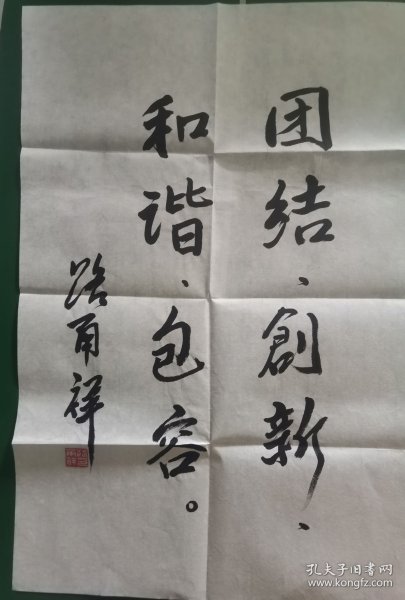 团结、創新、
和谐、包容。
路甬祥
孔夫子旧书网
www.kongfz.com